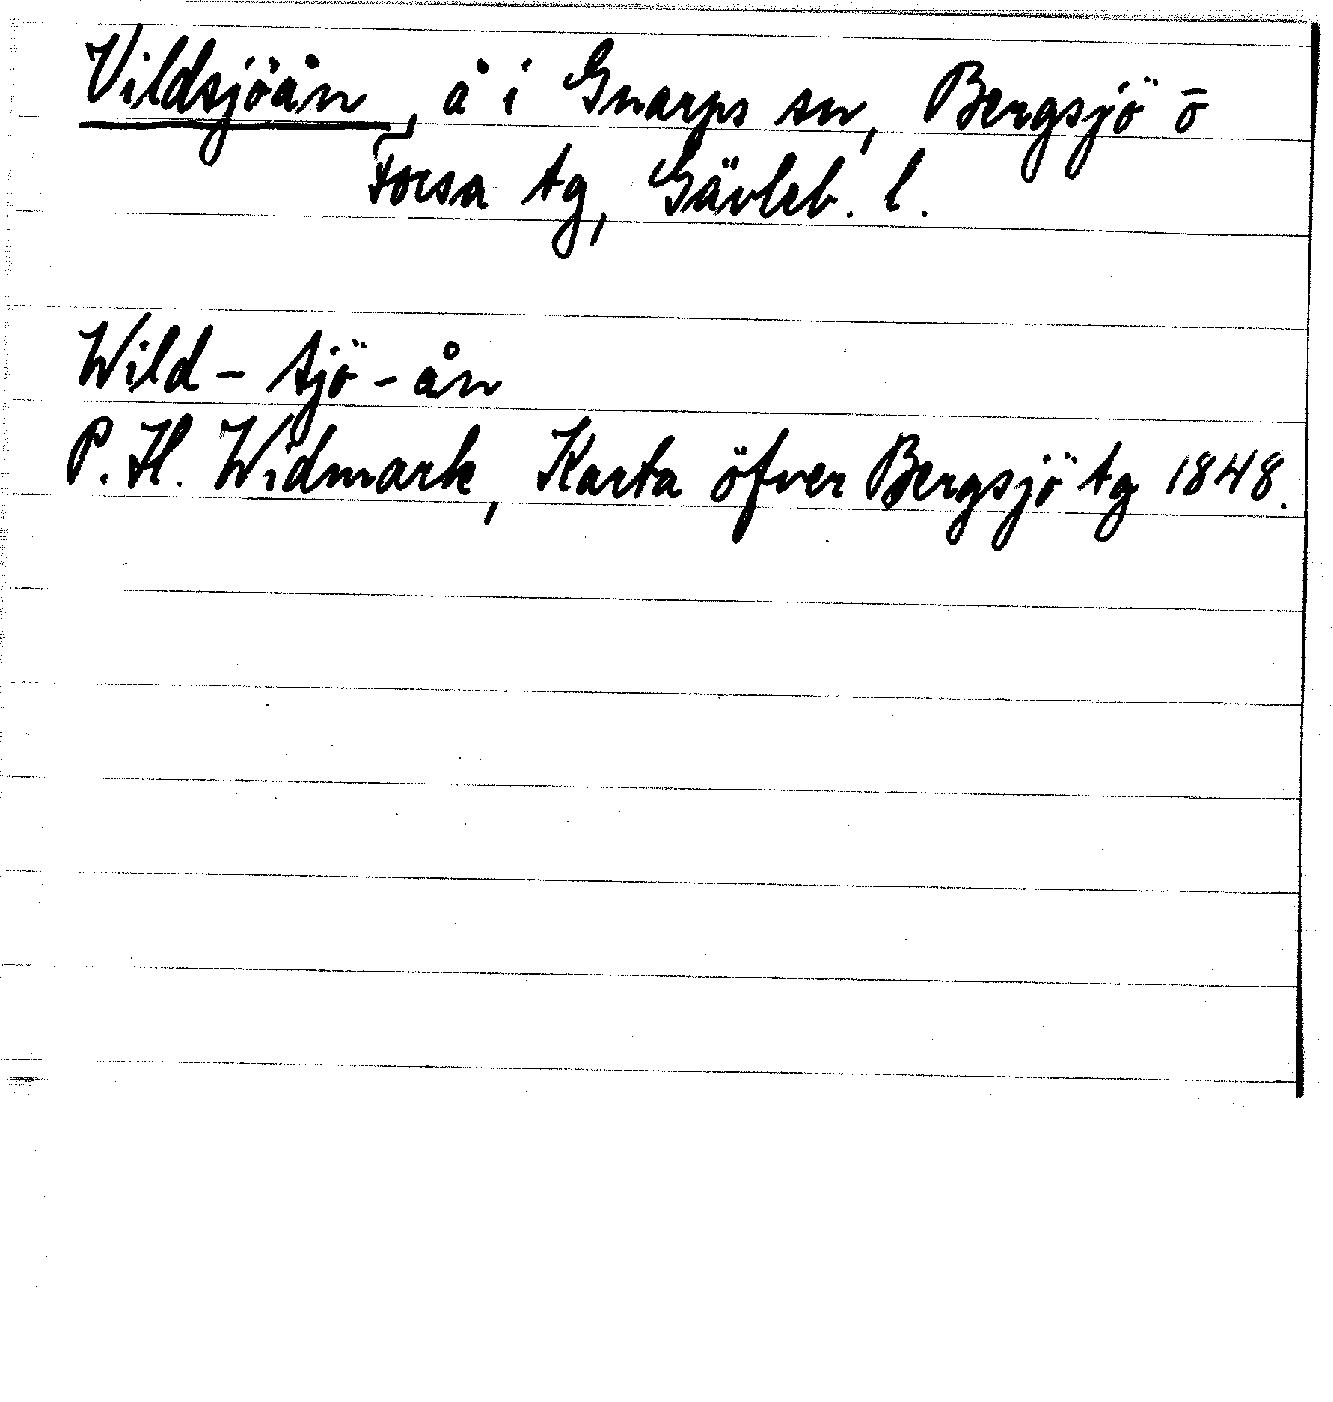 Vildsjöån, å i Gnarps sn, Bergsjö o
Forsa tg, Gävleb. l.
Wild - sjö - ån
P. H. Widmark, Karta öfver Bergsjö tg 1848.